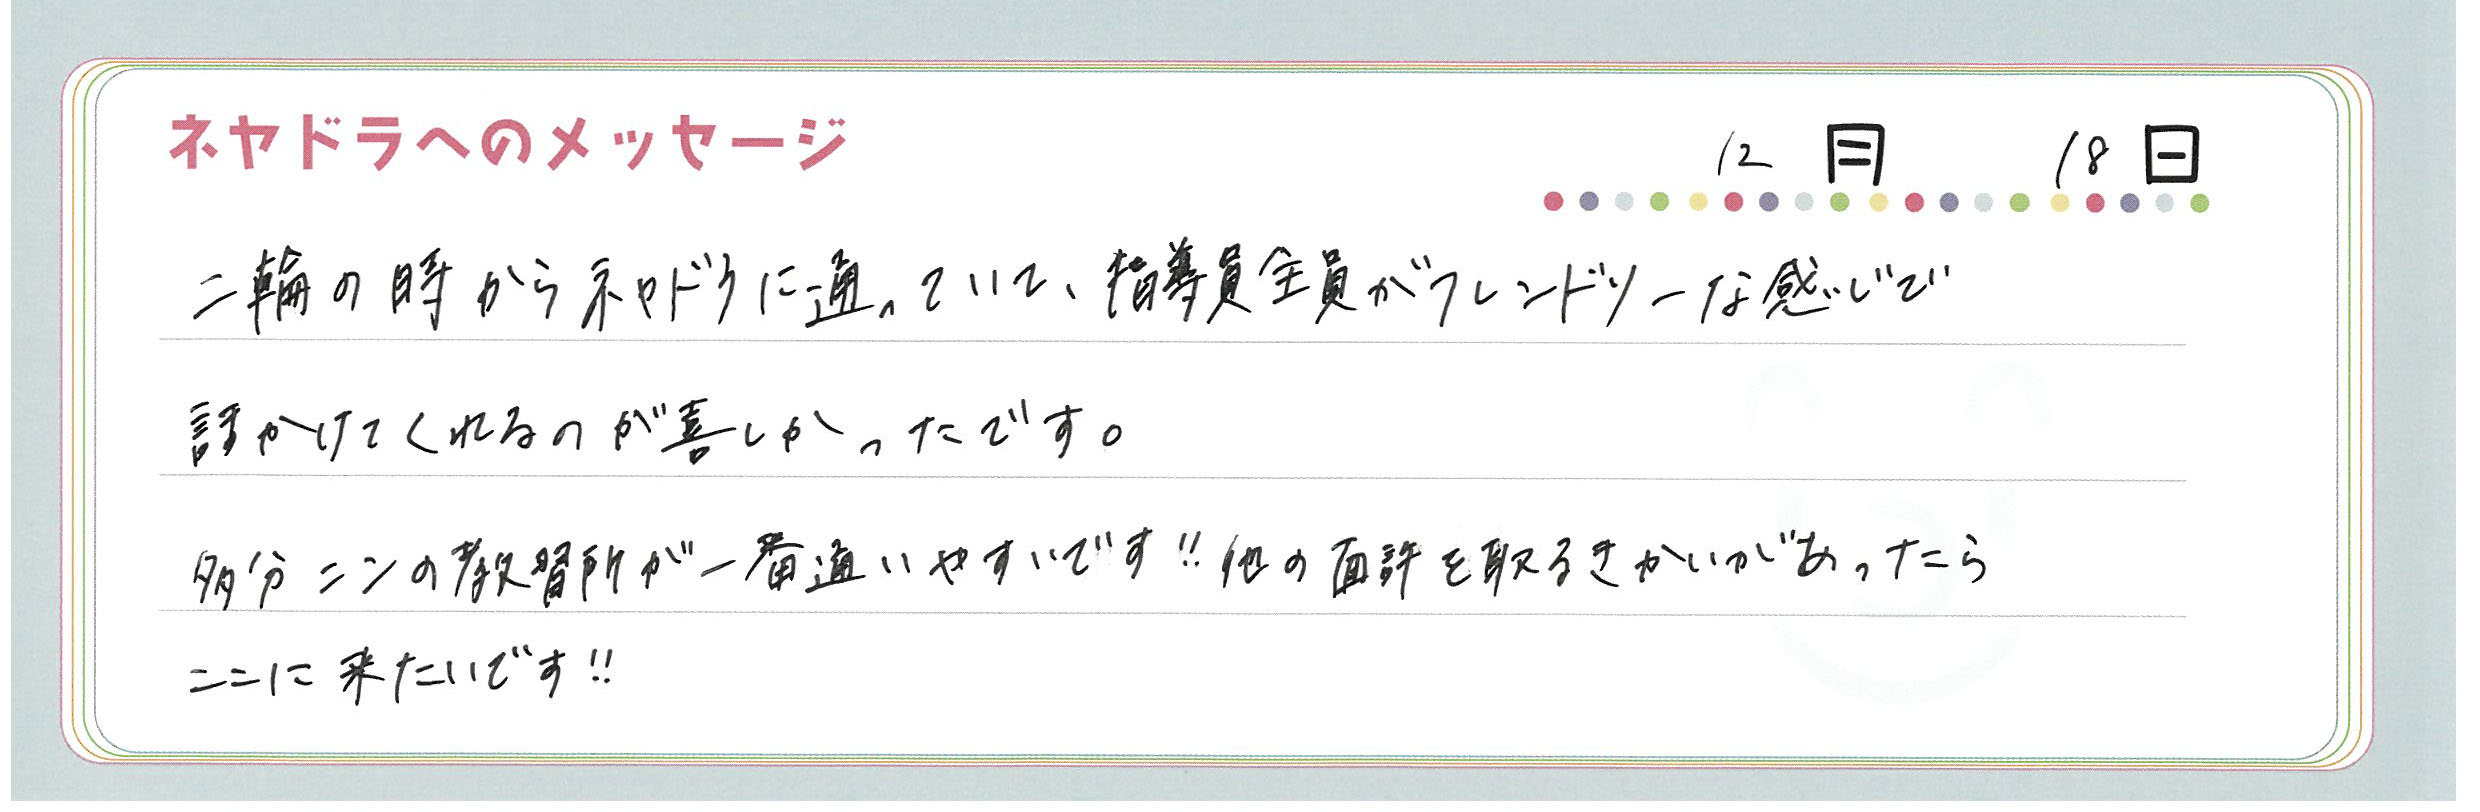 ネヤドラへのメッセージ
12 月 18 日
二輪の時からネヤドラに通っていて、指導員全員がフレンドリーな感じで
話かけてくれるのが喜しかったです。
多分ここの教習所が一番通いやすいです!!他の面許を取るきかいがあったら
ここに来たいです!!